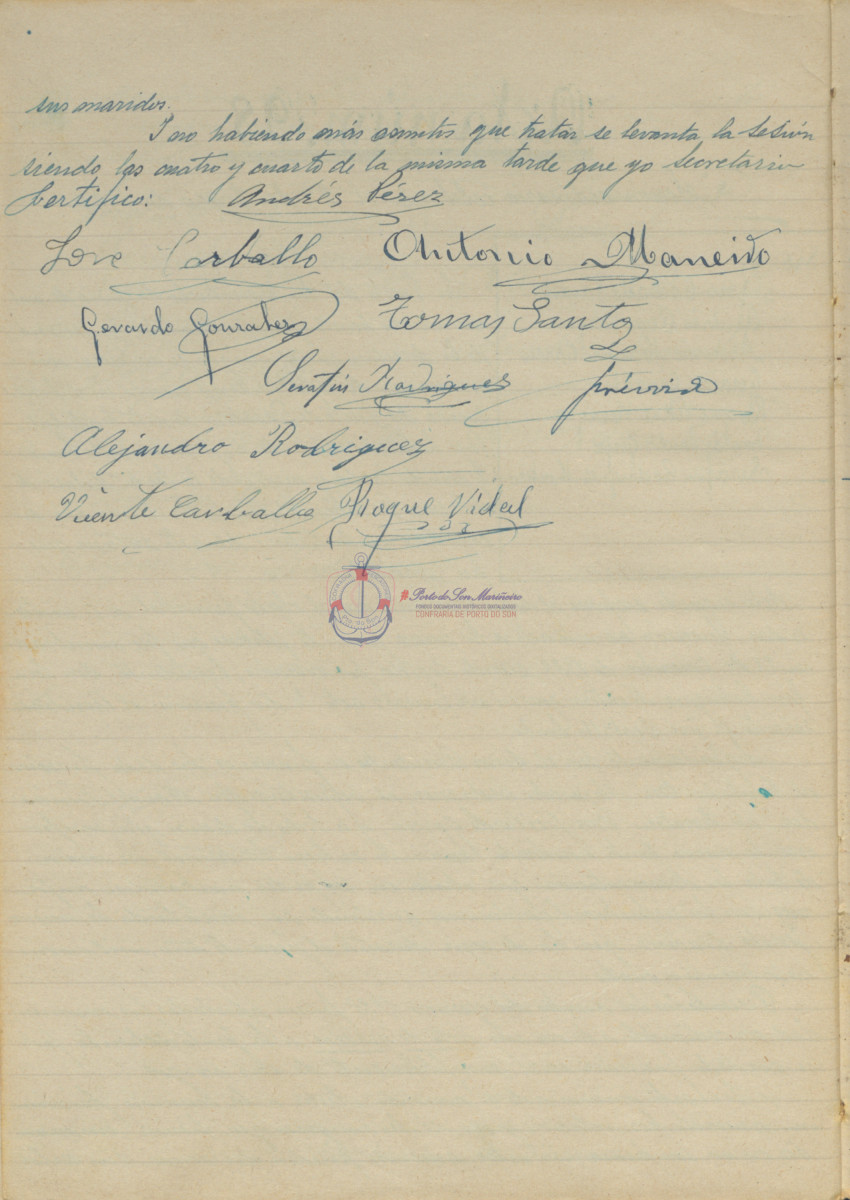 sus maridos.
I no habiendo más asuntos que tratar se levanta la sesión
siendo las cuatro y cuarto de la misma tarde que yo secretario
Certifico: Andrés Pérez
Jose Carballo Antonio Maneiro
Gerardo Gonzalez Tomas Santos
Serafin Rodriguez
Alejandro Rodriguez
Vicente Carballo Roque Vidal
Porto do Son Mariñeiro
FONDOS DOCUMENTAIS HISTÓRICOS DIXITALIZADOS
CONFRARÍA DE PORTO DO SON